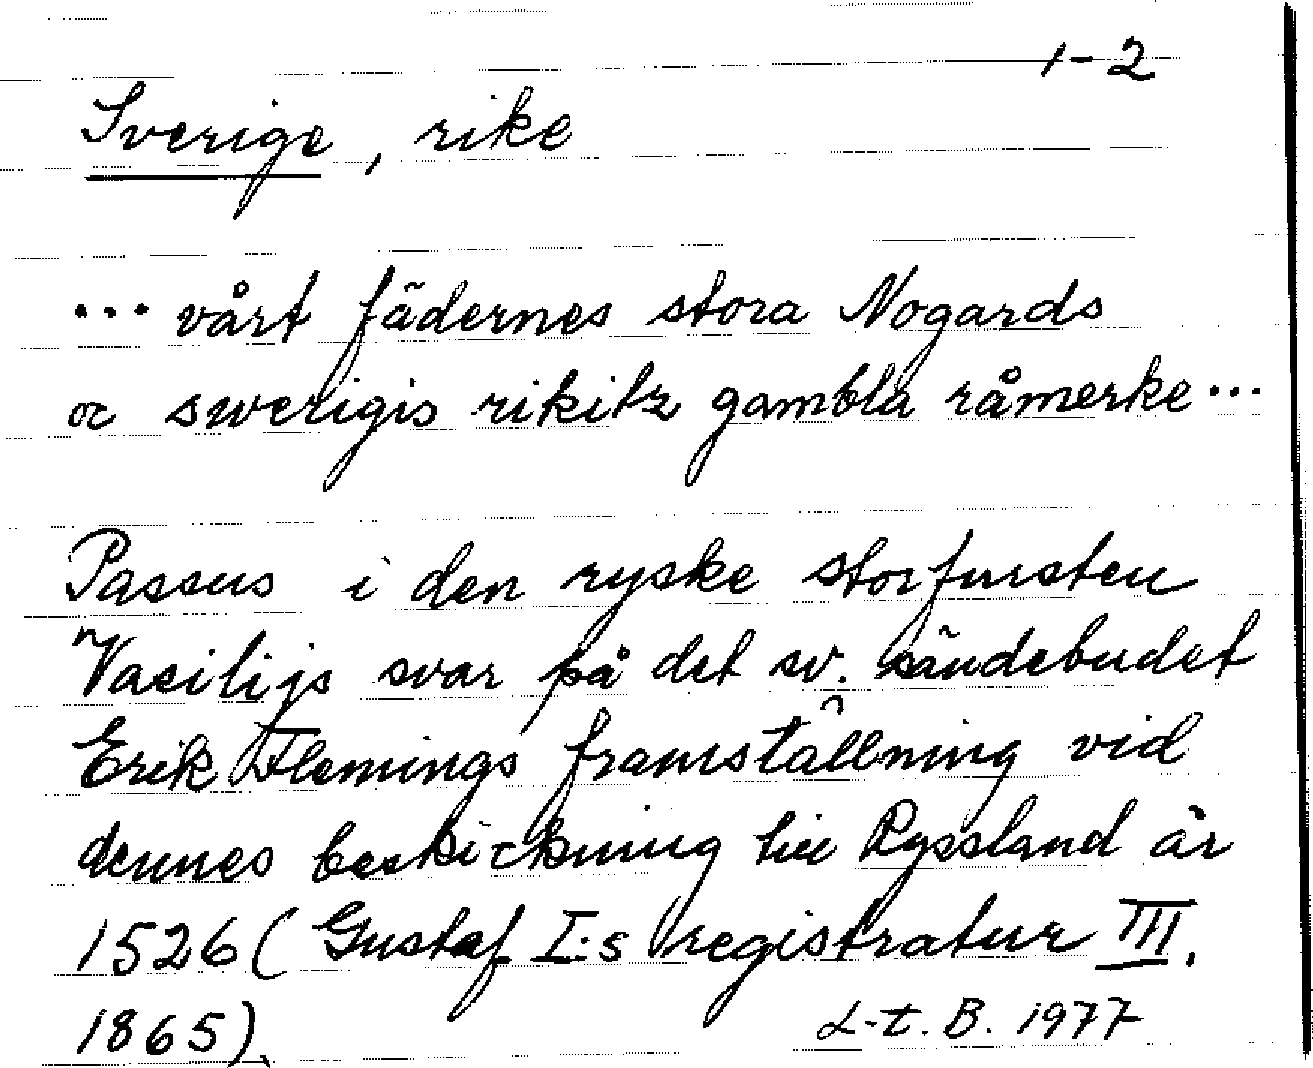 1-2
Sverige, rike
... vårt fädernes stora Nogards
oc swerigis rikitz gambla råmerke...
Passus i den ryske storfursten
Vasilijs svar på det sv. sändebudet
Erik Flemings framställning vid
dennes beskickning till Ryssland år
1526 (Gustaf I:s registratur III.
1865).
L-t. B. 1977